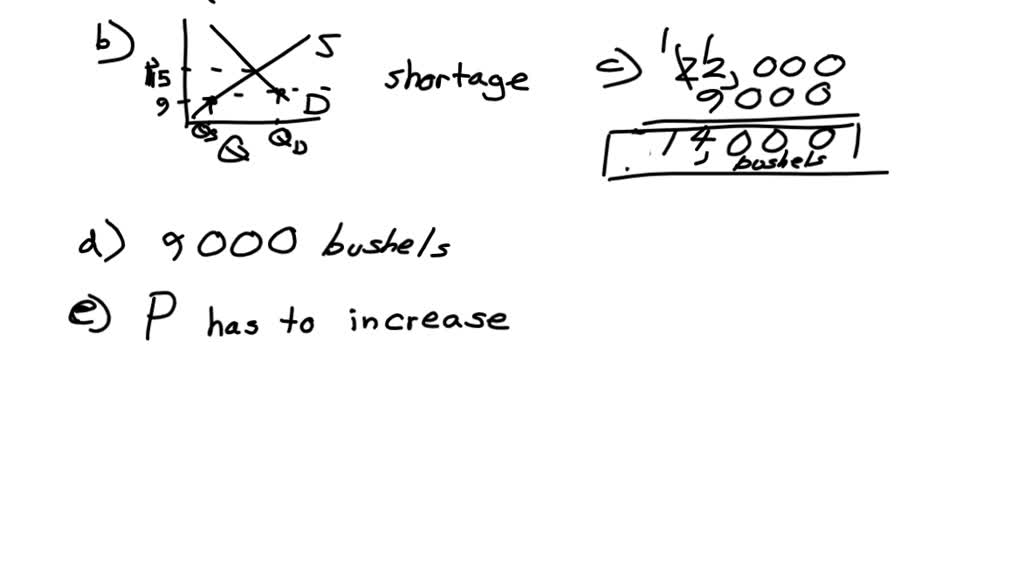 b)
P
15
9
S
D
Qs
QD
Q
shortage
c) 22,000
9000
14,000
bushels
d) 9000 bushels
e) P has to increase